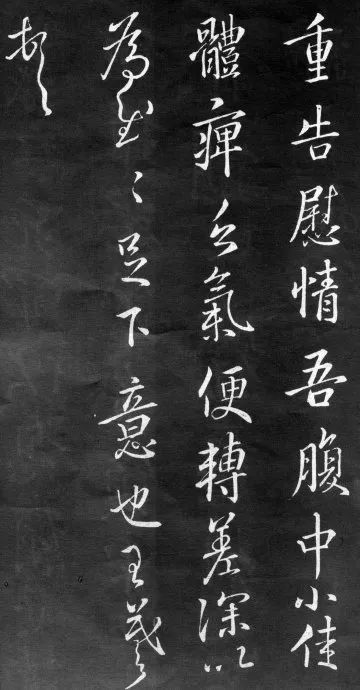 重告慰情吾腹中小佳
體痺乏氣便轉差深以
為慰〻足下意也王羲